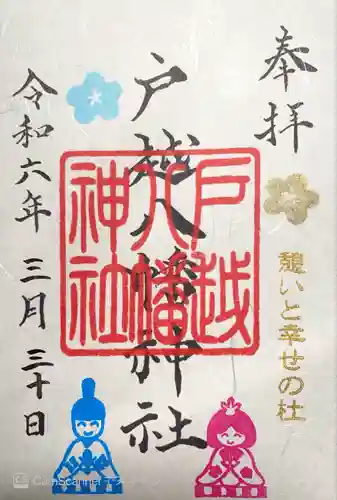 奉拝
憩いと幸せの杜
戸越八幡神社
戸越
八幡
神社
令和六年 三月 三十日
CamScanner